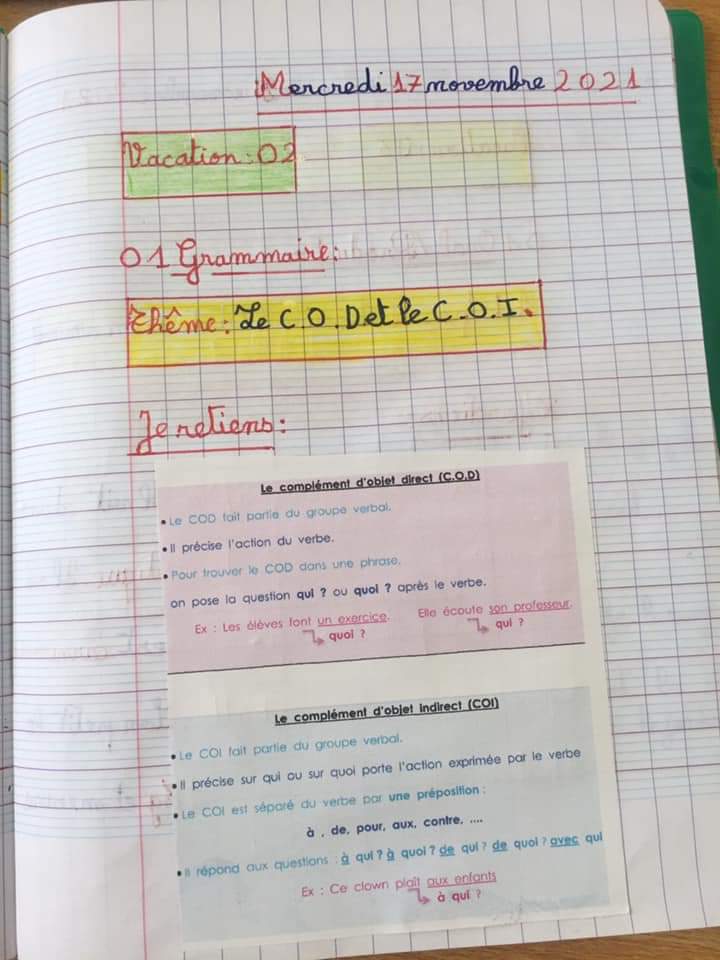 Mercredi 17 novembre 2021
Vacation : 02
01 Grammaire :
Thême : Le C.O.D et le C.O.I.
Je retiens :
Le complément d'objet direct (C.O.D)
• Le COD fait partie du groupe verbal.
• Il précise l'action du verbe.
• Pour trouver le COD dans une phrase,
on pose la question qui ? ou quoi ? après le verbe.
Ex : Les élèves font un exercice. Elle écoute son professeur.
quoi ? qui ?
Le complément d'objet indirect (COI)
• Le COI fait partie du groupe verbal.
• Il précise sur qui ou sur quoi porte l'action exprimée par le verbe
• Le COI est séparé du verbe par une préposition :
à , de, pour, aux, contre, ....
• Il répond aux questions : à qui ? à quoi ? de qui ? de quoi ? avec qui
Ex : Ce clown plaît aux enfants
à qui ?